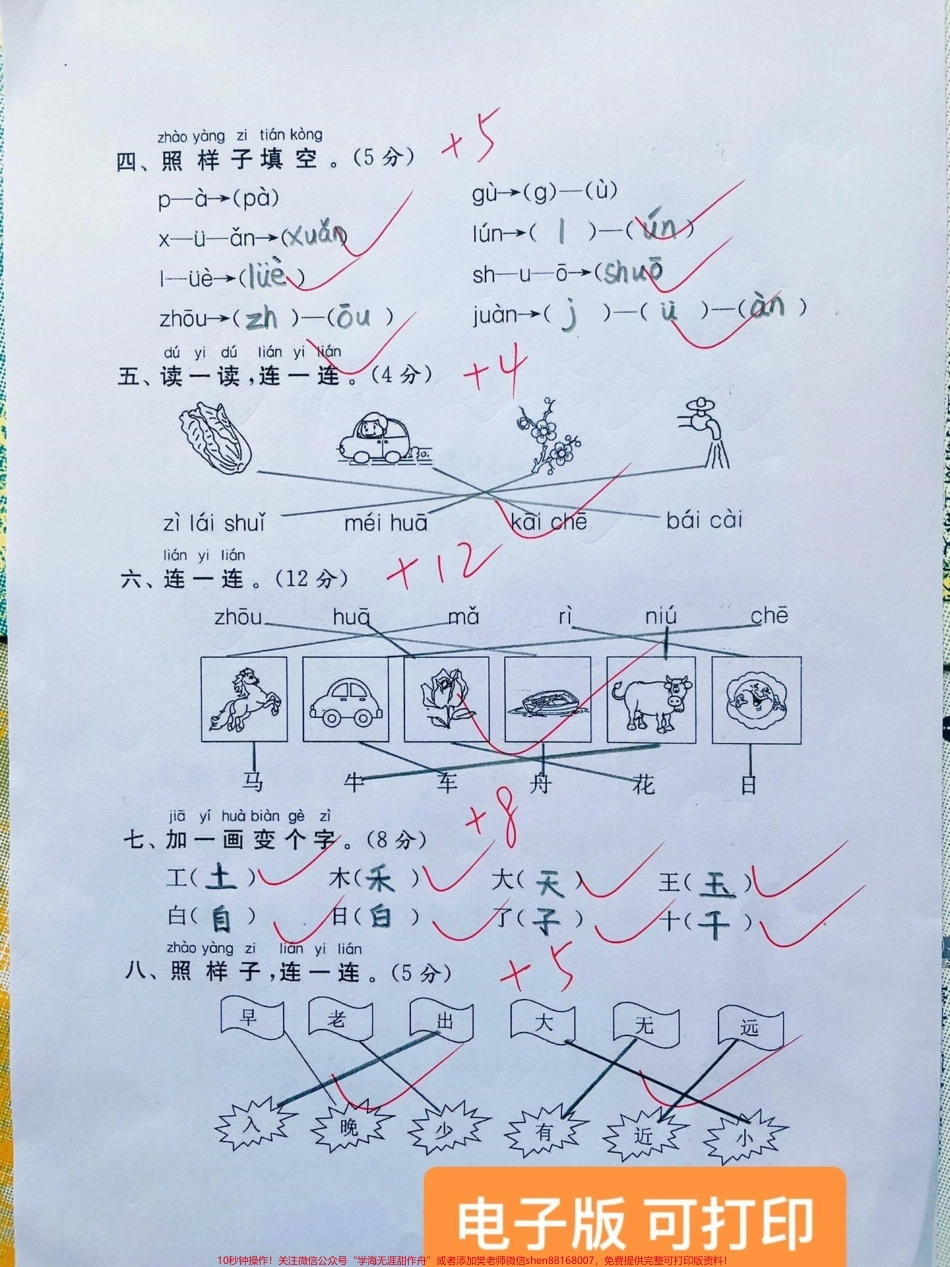 zhào yàng zi tián kòng
四、照样子填空。(5分) +5
p—à→(pà) gù→(g)—(ù)
x—ü—ǎn→(xuǎn) lún→( l )—( ún )
l—üè→(lüè) sh—u—ō→(shuō
zhōu→( zh )—( ōu ) juàn→( j )—( ü )—( àn )
dú yi dú lián yi lián
五、读一读,连一连。(4分) +4
zì lái shuǐ méi huā kāi chē bái cài
lián yi lián
六、连一连。(12分) +12
zhōu huā mǎ rì niú chē
马 牛 车 舟 花 日
jiā yí huà biàn gè zì
七、加一画变个字。(8分) +8
工(土) 木(禾) 大(天) 王(玉)
白(自) 日(白) 了(子) 十(千)
zhào yàng zi lián yi lián
八、照样子,连一连。(5分) +5
早 老 出 大 无 远
入 晚 少 有 近 小
电子版 可打印
10秒钟操作！关注微信公众号“学海无涯甜作舟”或者添加樊老师微信shen88168007，免费提供完整可打印版资料！